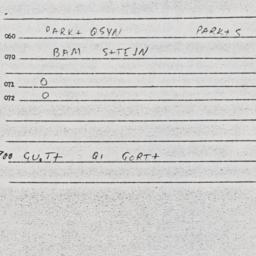 060 PARK+ QSYN PARK+ S
070 BAM S+TEIN
071 0
072 0
700 GU.T+ G1 GORT+